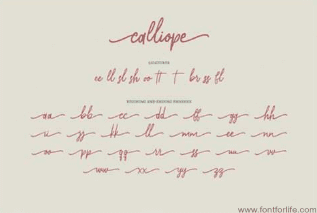 calliope
LIGATURES
ee ll sl sh co tt t br ss fl
BEGINNING AND ENDING SWASHES
aa bb cc dd ff gg hh
ii ss kk ll mm ee nn
oo pp gg rr ss uu vv
ww xx yy zz
www.fontforlife.com